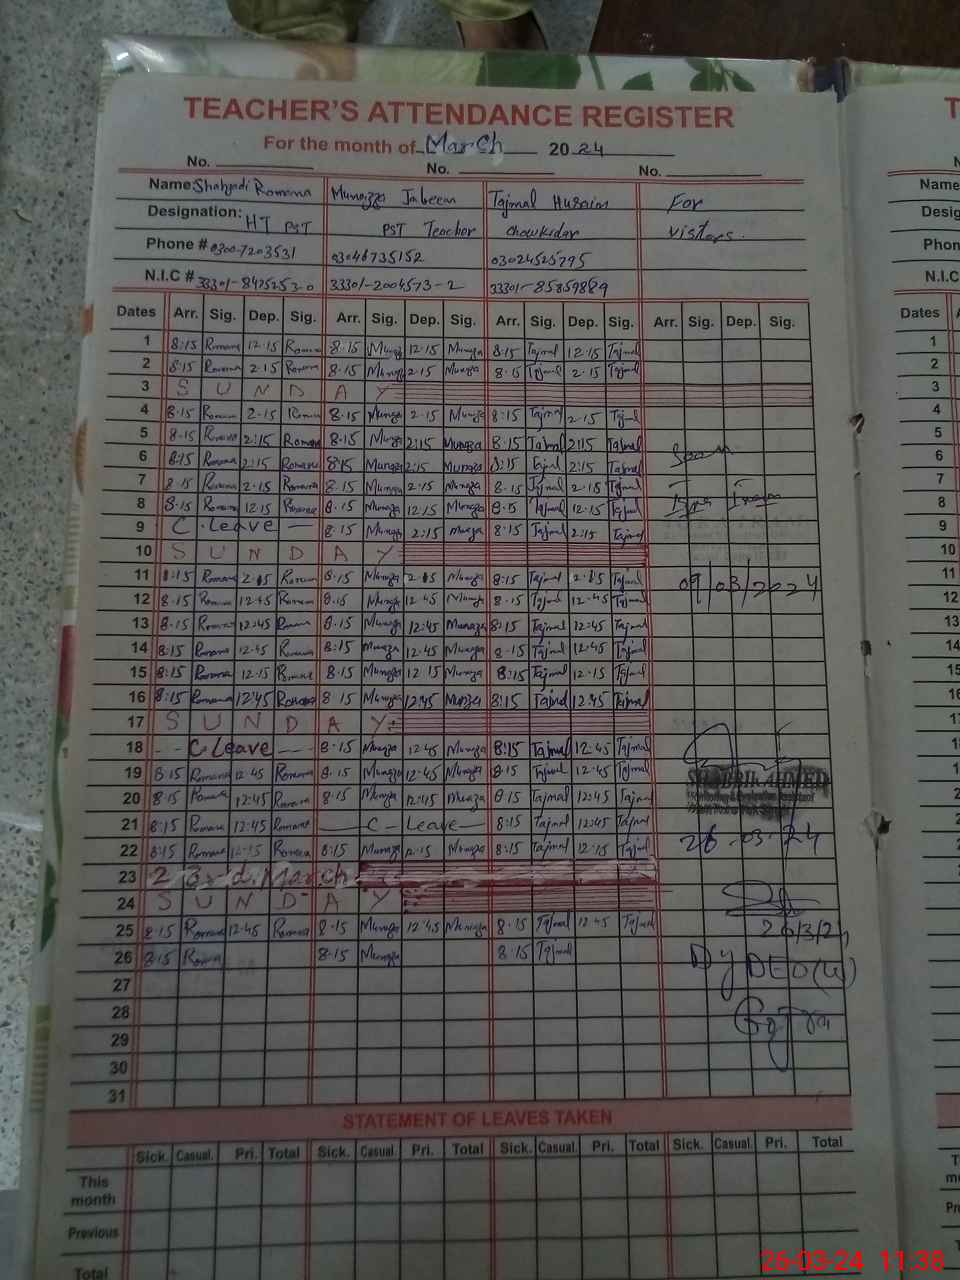 TEACHER'S ATTENDANCE REGISTER
For the month of March 20 24
No. No. No.
Name: Shahzadi Romana Munazza Jabeen Tajmal Husain For
Designation: HT PST PST Teacher Chowkidar vistors.
Phone # 0300-7203531 03046735152 03024525795
N.I.C # 33301-8475253-0 33301-2004573-2 33301-85859889
Dates Arr. Sig. Dep. Sig. Arr. Sig. Dep. Sig. Arr. Sig. Dep. Sig. Arr. Sig. Dep. Sig.
1 8:15 Romana 12.15 Romana 8.15 Munaza 12.15 Munaza 8.15 Tajmal 12.15 Tajmal
2 8:15 Romana 2.15 Romana 8.15 Munaza 2.15 Munaza 8.15 Tajmal 2.15 Tajmal
3 S U N D A Y
4 8.15 Romana 2.15 Romana 8.15 Munaza 2.15 Munaza 8:15 Tajmal 2.15 Tajmal
5 8.15 Romana 2:15 Romana 8.15 Munaza 2:15 Munaza 8:15 Tajmal 2:15 Tajmal
6 8:15 Romana 2:15 Romana 8:15 Munaza 2:15 Munaza 8:15 Tajmal 2:15 Tajmal
7 8.15 Romana 2.15 Romana 8.15 Munaza 2.15 Munaza 8.15 Tajmal 2.15 Tajmal
8 8.15 Romana 12.15 Romana 8.15 Munaza 12.15 Munaza 8.5 Tajmal 12.15 Tajmal
9 C.leave 8:15 Munaza 2:15 Munaza 8:15 Tajmal 2:15 Tajmal
10 S U N D A Y
11 8:15 Romana 2.15 Romana 8.15 Munaza 2.15 Munaza 8:15 Tajmal 2.15 Tajmal
09/03/2024
12 8.15 Romana 12.45 Romana 8.15 Munaza 12.45 Munaza 8.15 Tajmal 12.45 Tajmal
13 8.15 Romana 12:45 Romana 8.15 Munaza 12:45 Munaza 8:15 Tajmal 12:45 Tajmal
14 8:15 Romana 12.45 Romana 8:15 Munaza 12.45 Munaza 8.15 Tajmal 12.45 Tajmal
15 8:15 Romana 12.15 Romana 8.15 Munaza 12 15 Munaza 8:15 Tajmal 12.15 Tajmal
16 8:15 Romana 12:45 Romana 8 15 Munaza 12:45 Munza 8:15 Tajmal 12:45 Tajmal
17 S U N D A Y
18 C leave 8.15 Munaza 12.45 Munaza 8:15 Tajmal 12.45 Tajmal
19 8:15 Romana 12.45 Romana 8.15 Munaza 12.45 Munaza 8.15 Tajmal 12.45 Tajmal
SHABBIR AHMED
20 8:15 Romana 12:45 Romana 8.15 Munaza 12:45 Munaza 8:15 Tajmal 12:45 Tajmal
21 8:15 Romana 12:45 Romana C - Leave 8:15 Tajmal 12:45 Tajmal
26-03-24
22 8:15 Romana 12:15 Romana 8:15 Munaza 12.15 Munaza 8:15 Tajmal 12.15 Tajmal
23 23rd. March
24 S U N D A Y
25 8.15 Romana 12.45 Romana 8.15 Munaza 12.45 Munaza 8.15 Tajmal 12.45 Tajmal
26/3/24
26 8.15 Roma 8.15 Munaza 8.15 Tajmal
Dy DEO(W)
27
28
Gojra
29
30
31
STATEMENT OF LEAVES TAKEN
Sick. Casual. Pri. Total Sick. Casual. Pri. Total Sick. Casual. Pri. Total Sick. Casual. Pri. Total
This month
Previous
Total
26-03-24 11:38